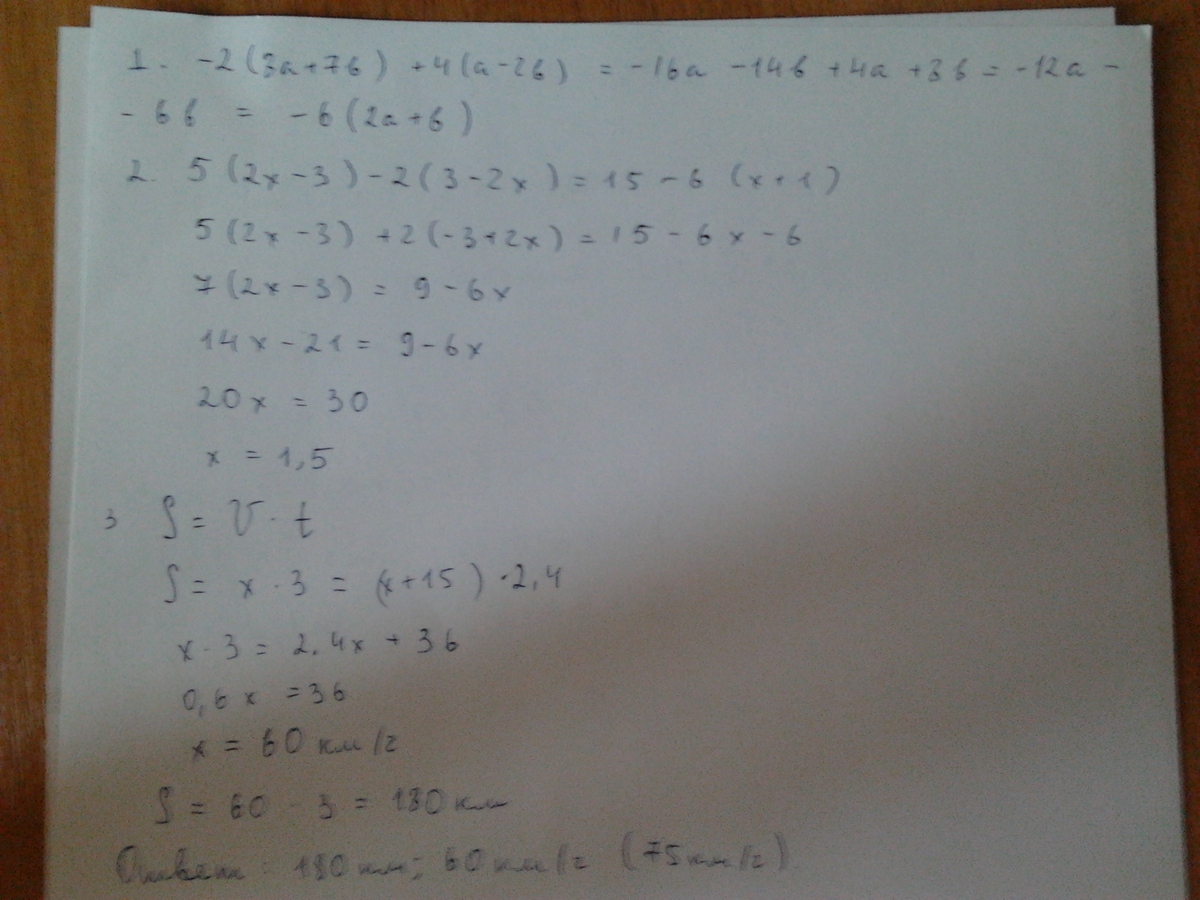 1. -2(3a+7b) +4(a-2b) = -16a -14b +4a +8b = -12a -
- 6b = -6(2a+b)
2. 5(2x-3)-2(3-2x)=15-6(x+1)
5(2x-3)+2(-3+2x)=15-6x-6
7(2x-3) = 9-6x
14x-21= 9-6x
20x = 30
x = 1,5
3 S = V · t
S = x · 3 = (x+15) · 2,4
x · 3 = 2.4x + 36
0,6x = 36
x = 60 км/г
S = 60 · 3 = 180 км
Ответ: 180 км; 60 км/г (75 км/г)